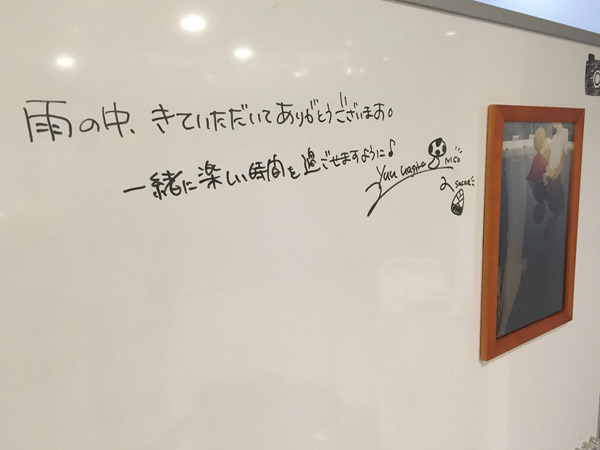 雨の中、きていただいてありがとうございます。
一緒に楽しい時間を過ごせますように♪
Yuu
NICO